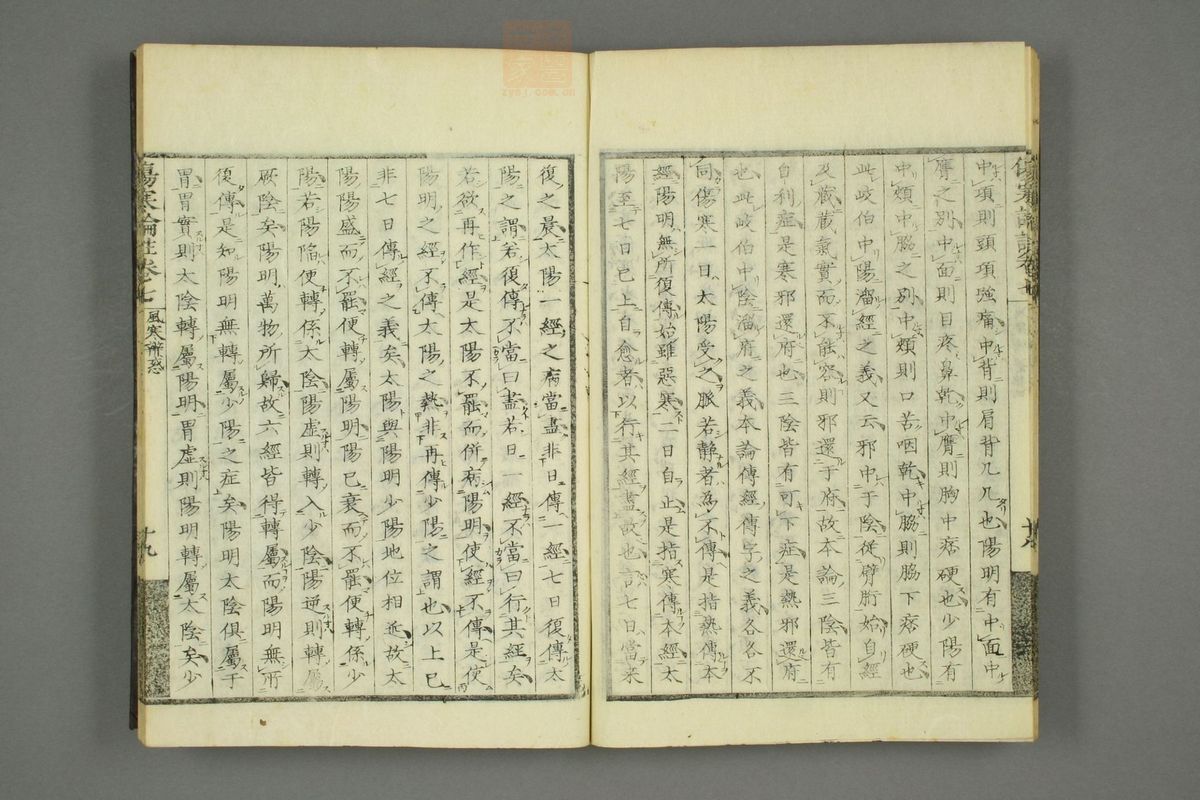 中項則頭項強痛中背則肩背几几也陽明有中面中
膺之別中面則目疼鼻乾中膺則胸中痞硬也少陽有
中頰中脇之別中頰則口苦咽乾中脇則脇下痞硬也
此岐伯中陽溜經之義又云邪中于陰從臂䯒始自經
及藏藏氣實而不能容則邪還于府故本論三陰皆有
自利症是寒邪還府也三陰皆有可下症是熱邪還府
也此岐伯中陰溜府之義本論傳經傳字之義各各不
同傷寒一日太陽受之脈若靜者為不傳是指熱傳本
經陽明無所復傳始雖惡寒二日自止是指寒傳本經太
陽至七日已上自愈者以行其經盡故也言七日當來
復之晨太陽一經之病當盡非日傳一經七日復傳太
陽之謂若復傳不當曰盡若日一經不當曰行其經矣
若欲再作經是太陽不罷而併病陽明使經不傳是使
陽明之經不傳太陽之熱非再傳少陽之謂也以上已
非七日傳經之義矣太陽與陽明少陽地位相近故太
陽陽盛而不罷便轉屬陽明陽已衰而不罷便轉係少
陽若陽陷便轉係太陰陽虛則轉入少陰陽逆則轉屬
厥陰矣陽明萬物所歸故六經皆得轉屬而陽明無所
復傳是知陽明無轉屬少陽之症矣陽明太陰俱屬于
胃胃實則太陰轉屬陽明胃虛則陽明轉屬太陰矣少
傷寒論註卷七
風寒辨惑
十九
十八
zysj.com.cn